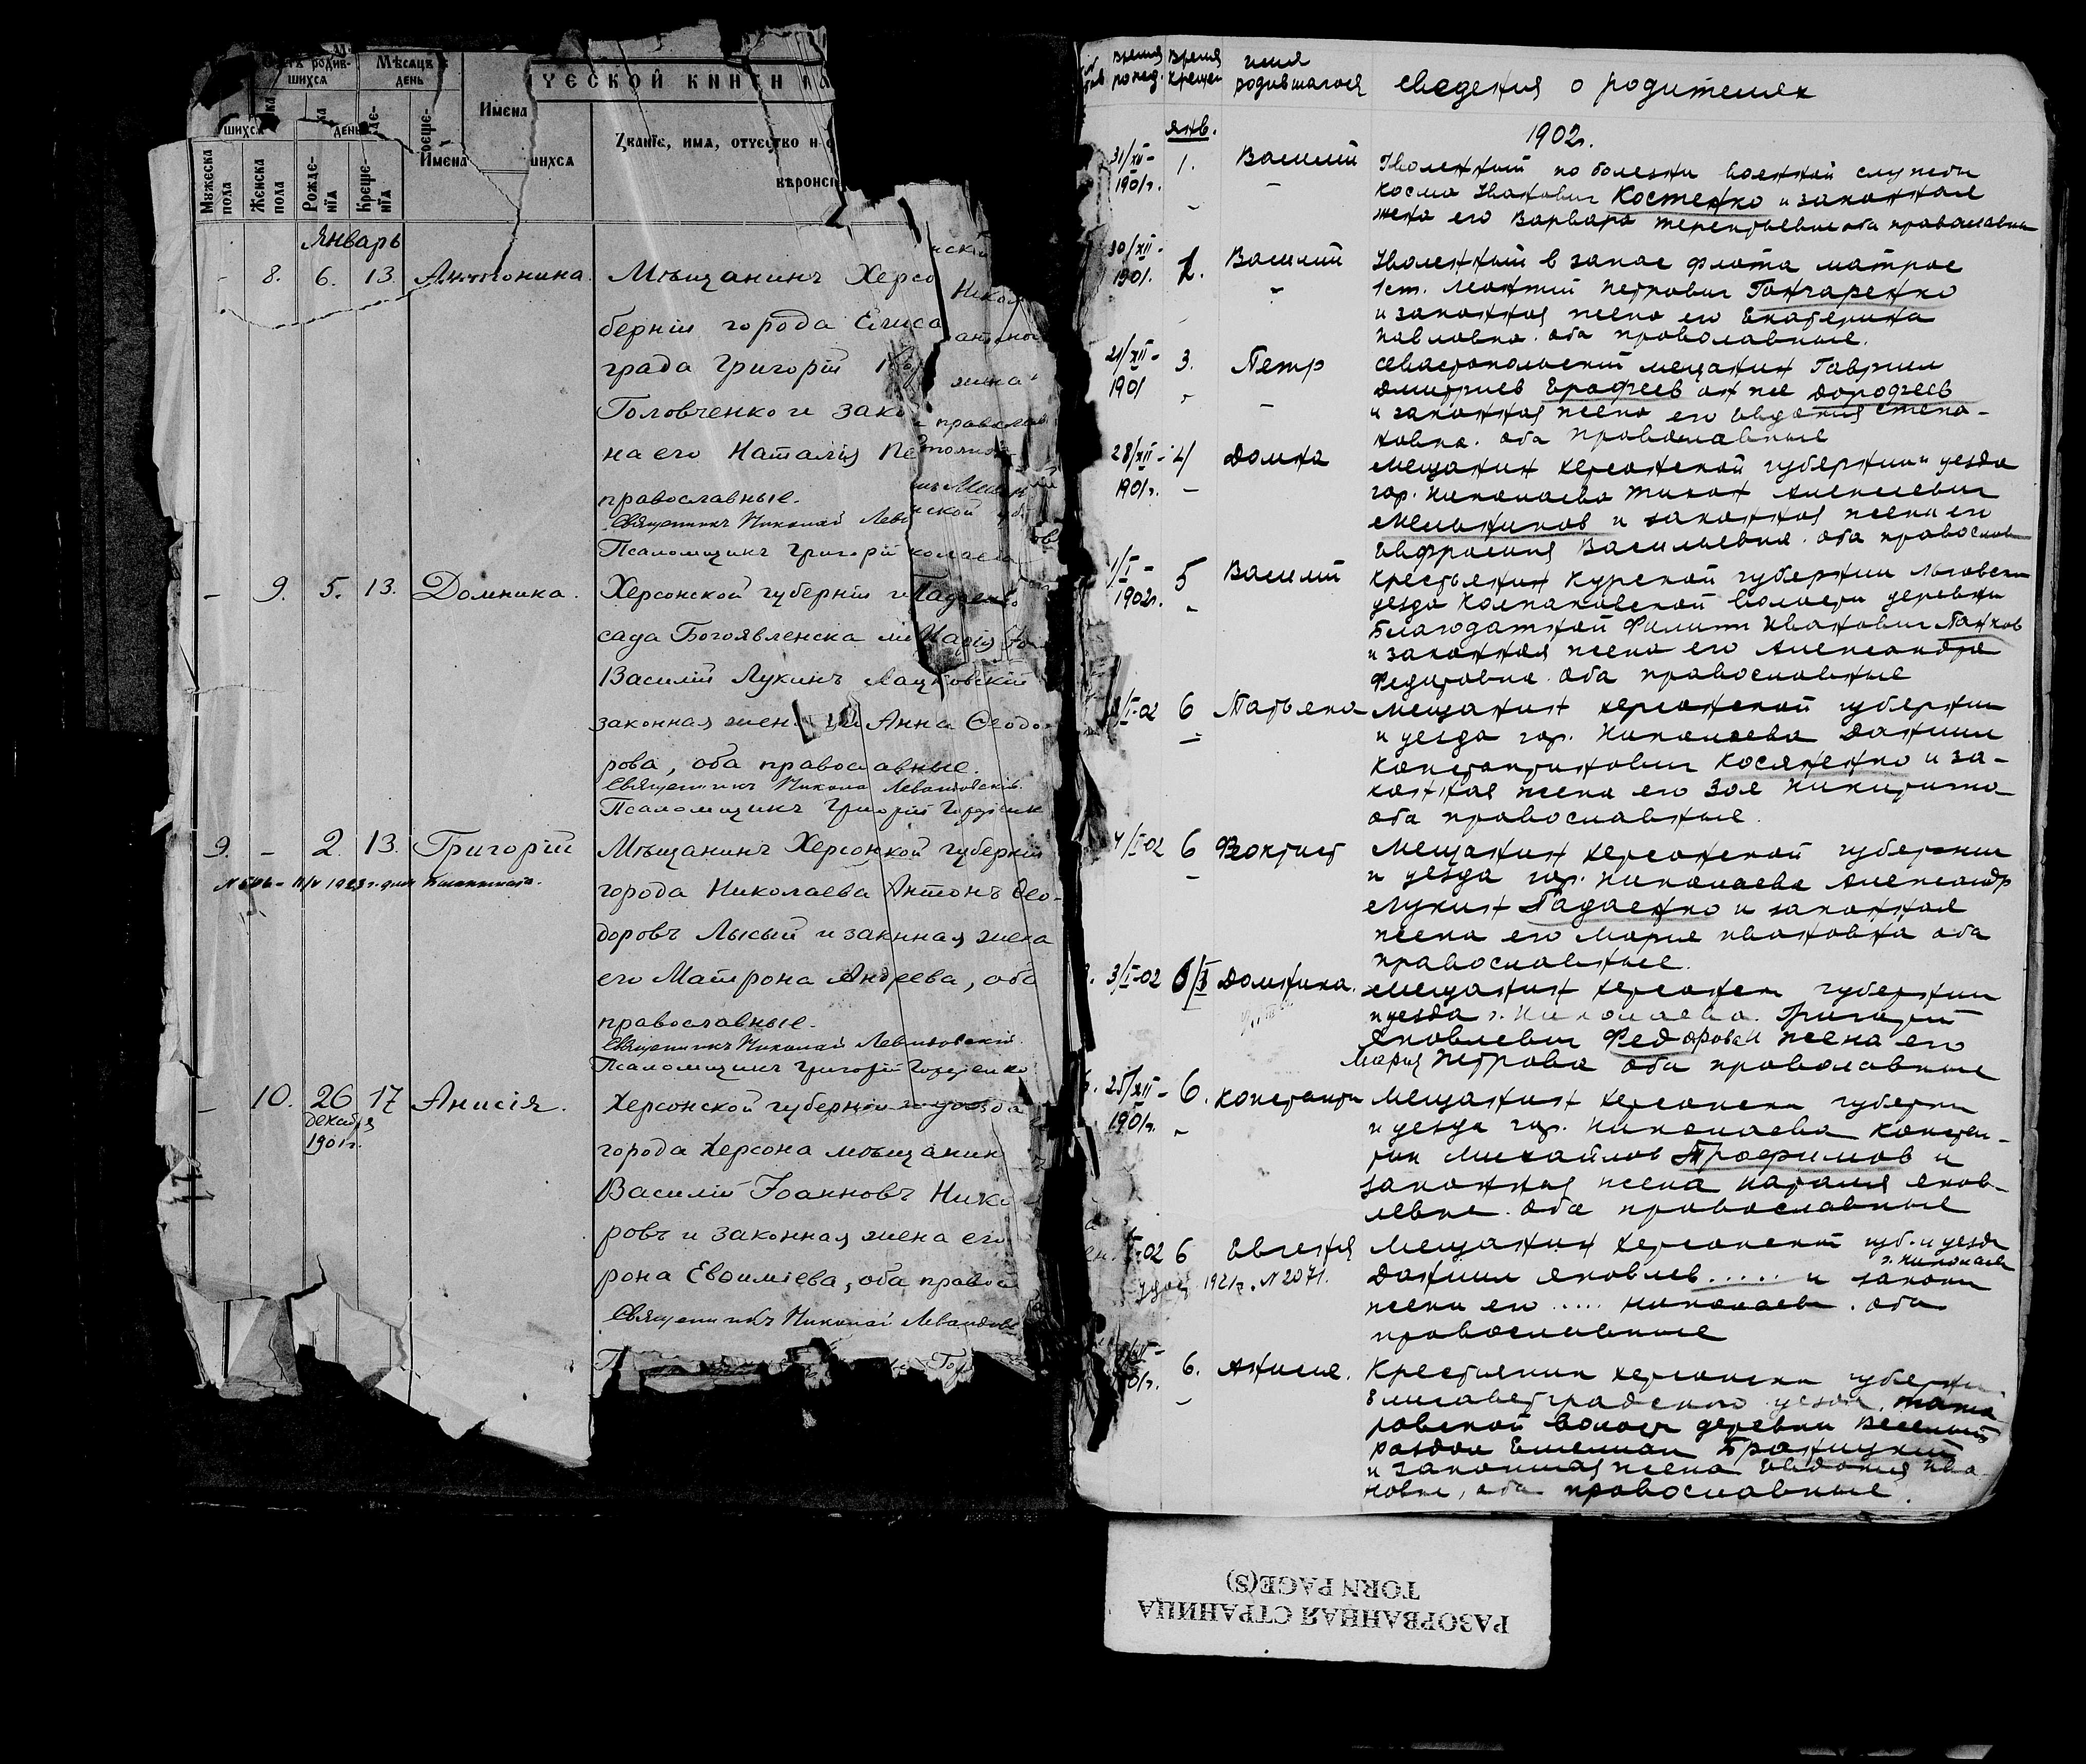 шихся
Мѣсяцъ и
день
ЧЕСКОЙ КНИГИ
Имена
шихся
день
Имена
шихся
Званіе, имя, отчество и
вѣроиспо
Мужеска пола
Женска пола
Рожде-нія
Креще-нія
Январь
- 8. 6. 13. Антонина.
Мѣщанинъ Херсо
берніи города Елиса
града Григорій
Головченко и зако
на его Наталія Пе
православные.
Священникъ Николай Лева
Псаломщикъ Григорій
- 9. 5. 13. Домника.
Херсонской губерніи
сада Богоявленска
Василій Лукинъ Лацковскій
законная жен Анна Ѳеодо-
рова, оба православные.
Священникъ Никола Левандовскій.
Псаломщикъ Григорій
9. - 2. 13. Григорій
Мѣщанинъ Херсонской губерніи
города Николаева Антонъ Ѳео-
доровъ Лысый и закнная жена
его Матрона Андреева, оба
православные.
Священникъ Николай Левандовскій.
Псаломщикъ Григорій Гордіенко
- 10. 26 17 Анисія.
Декабря
1901 г.
Херсонской губерніи и уѣзда
города Херсона мѣщанин
Василій Іоанновъ Ники
ровъ и законная жена его
рона Евѳиміева, оба правос
Священникъ Николай Левандовс
время рожд.
время крещен
имя родившагося
сведения о родителях
1902г.
янв.
31/XII- 1901г. 1. Василий
Уволенный по болезни военной службы
Косма Иванович Костенко и законная
жена его Варвара Терентьевна оба православны
30/XII- 1901. 2. Василий
Уволенный в запас флота матрос
1ст. Леонтий Петрович Гончаренко
и законная жена его Екатерина
Павловна. оба православные.
21/XII- 1901 3. Петр
Севастопольский мещанин Гавриил
Дмитриев Ерофеев он же Дорофеев
и законная жена его Евдокия Степа-
новна. оба православные
28/XII- 1901г. 4 Домна
Мещанин херсонской губернии и уезда
гор. Николаева Тихон Алексеевич
Мельников и законная жена его
Евфросиния Васильевна. оба православн
1/I- 1902г. 5 Василий
Крестьянин Курской губернии Льговски
уезда Колпаковской волости деревни
Благодатной Филипп Иванович Панков
и законная жена его Александра
Федоровна. оба православные
/I-02 6 Татьяна
Мещанин херсонской губернии
и уезда гор. Николаева Даниил
Константинович Косяненко и за-
конная жена его Зоя Никитична
оба православные.
4/I-02 6 Феоктист
Мещанин херсонской губернии
и уезда гор. Николаева Александр
Лукин Гадаенко и законная
жена его Мария Ивановна оба
православные.
3/I-02 6/I Домника.
Мещанин херсонск губернии
и уезда г. Николаева. Григорий
Яковлевич Федоров и жена его
Мария Петрова оба православные
25/XII- 1901г. 6. Константин
Мещанин херсонски губерни
и уезда гор. Николаева Констан-
тин Михайлов Трофимов и
законная жена Наталия Яков-
левна. оба православные
I-02 6 Евгения
1921г. № 2071.
Мещанин херсонской губ. и уезда
г. Николаева
Даниил Яковлев ..... и законн
жена его ..... Николаева. оба
православные
6. Анисия.
Крестьянин херсонски губерни
Елисаветградского уезда,
ровской волости деревни Веселый
раздол Емелиан Браницкий
и законная жена Евдокия Ива
новна, оба православные.
РАЗОРВАННАЯ СТРАНИЦА
TORN PAGE(S)